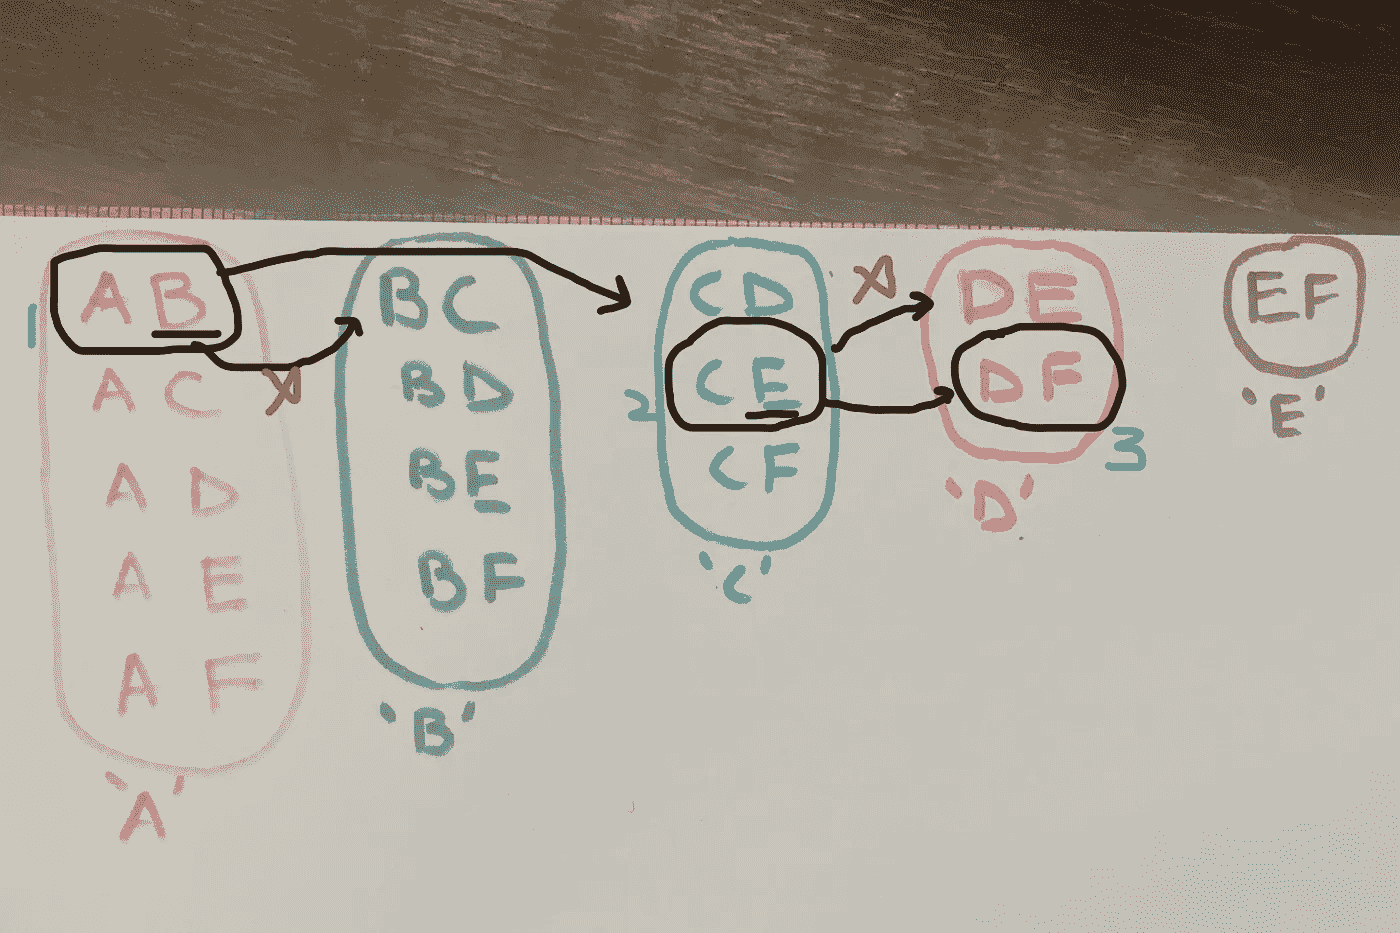 1
AB
AC
AD
AE
AF
'A'
BC
BD
BE
BF
'B'
X
2
CD
CE
CF
'C'
X
DE
DF
3
'D'
EF
'E'